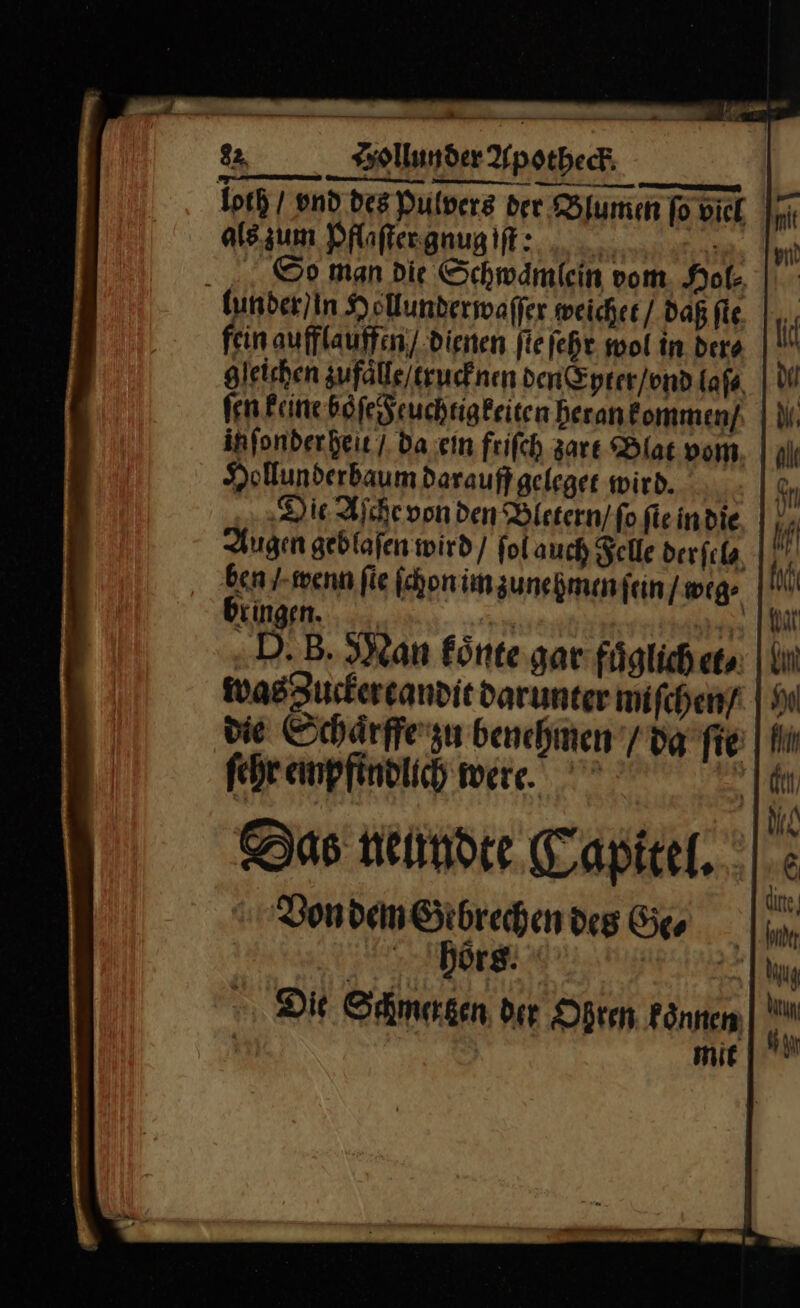 82 Hollunder Apotheck.
loth / vnd des Pulvers der Blumen ſo viel
als zum Pflaſter gnug iſt:
So man die Schwaͤmlein vom Hol⸗
lunder) in Hollunderwaſſer weichet / daß ſie
fein aufflauffen / dienen ſie ſehr wol in der⸗
gleichen zufaͤlle / trucknen den Eyter / vnd laſ⸗
ſen keine boͤſe Feuchtigkeiten heran kommen /
inſonderheit / da ein friſch zart Blat vom
Hollunderbaum darauff geleget wird.
Die Aſche von den Bletern / ſo ſie in die
Augen geblaſen wird / ſol auch Felle derſel⸗
ben / wenn ſie ſchon im zunehmen ſein / weg⸗
bringen.
D. B. Man koͤnte gar fuͤglich et⸗
was Zuckercandit darunter miſchen /
die Schaͤrffe zu benehmen / da ſie
ſehr empfindlich were.
Das neundte Capitel.
Von dem Gebrechen des Ge⸗
hoͤrs.
Die Schmertzen der Ohren koͤnnen
mit